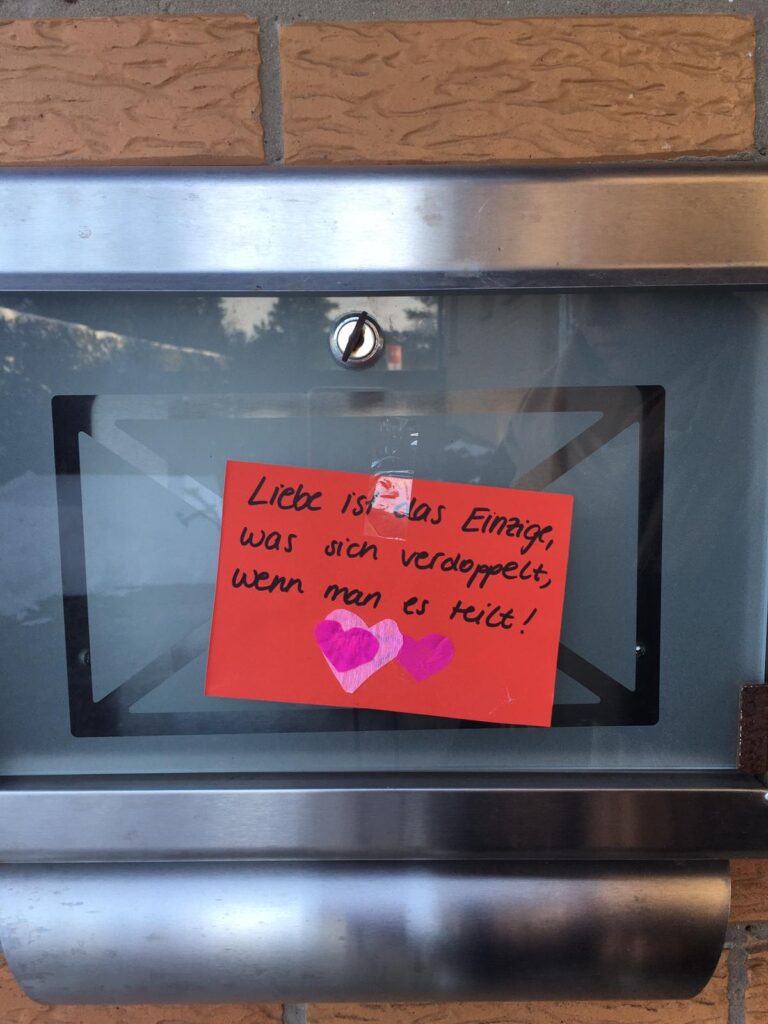 Liebe ist das Einzige,
was sich verdoppelt,
wenn man es teilt!